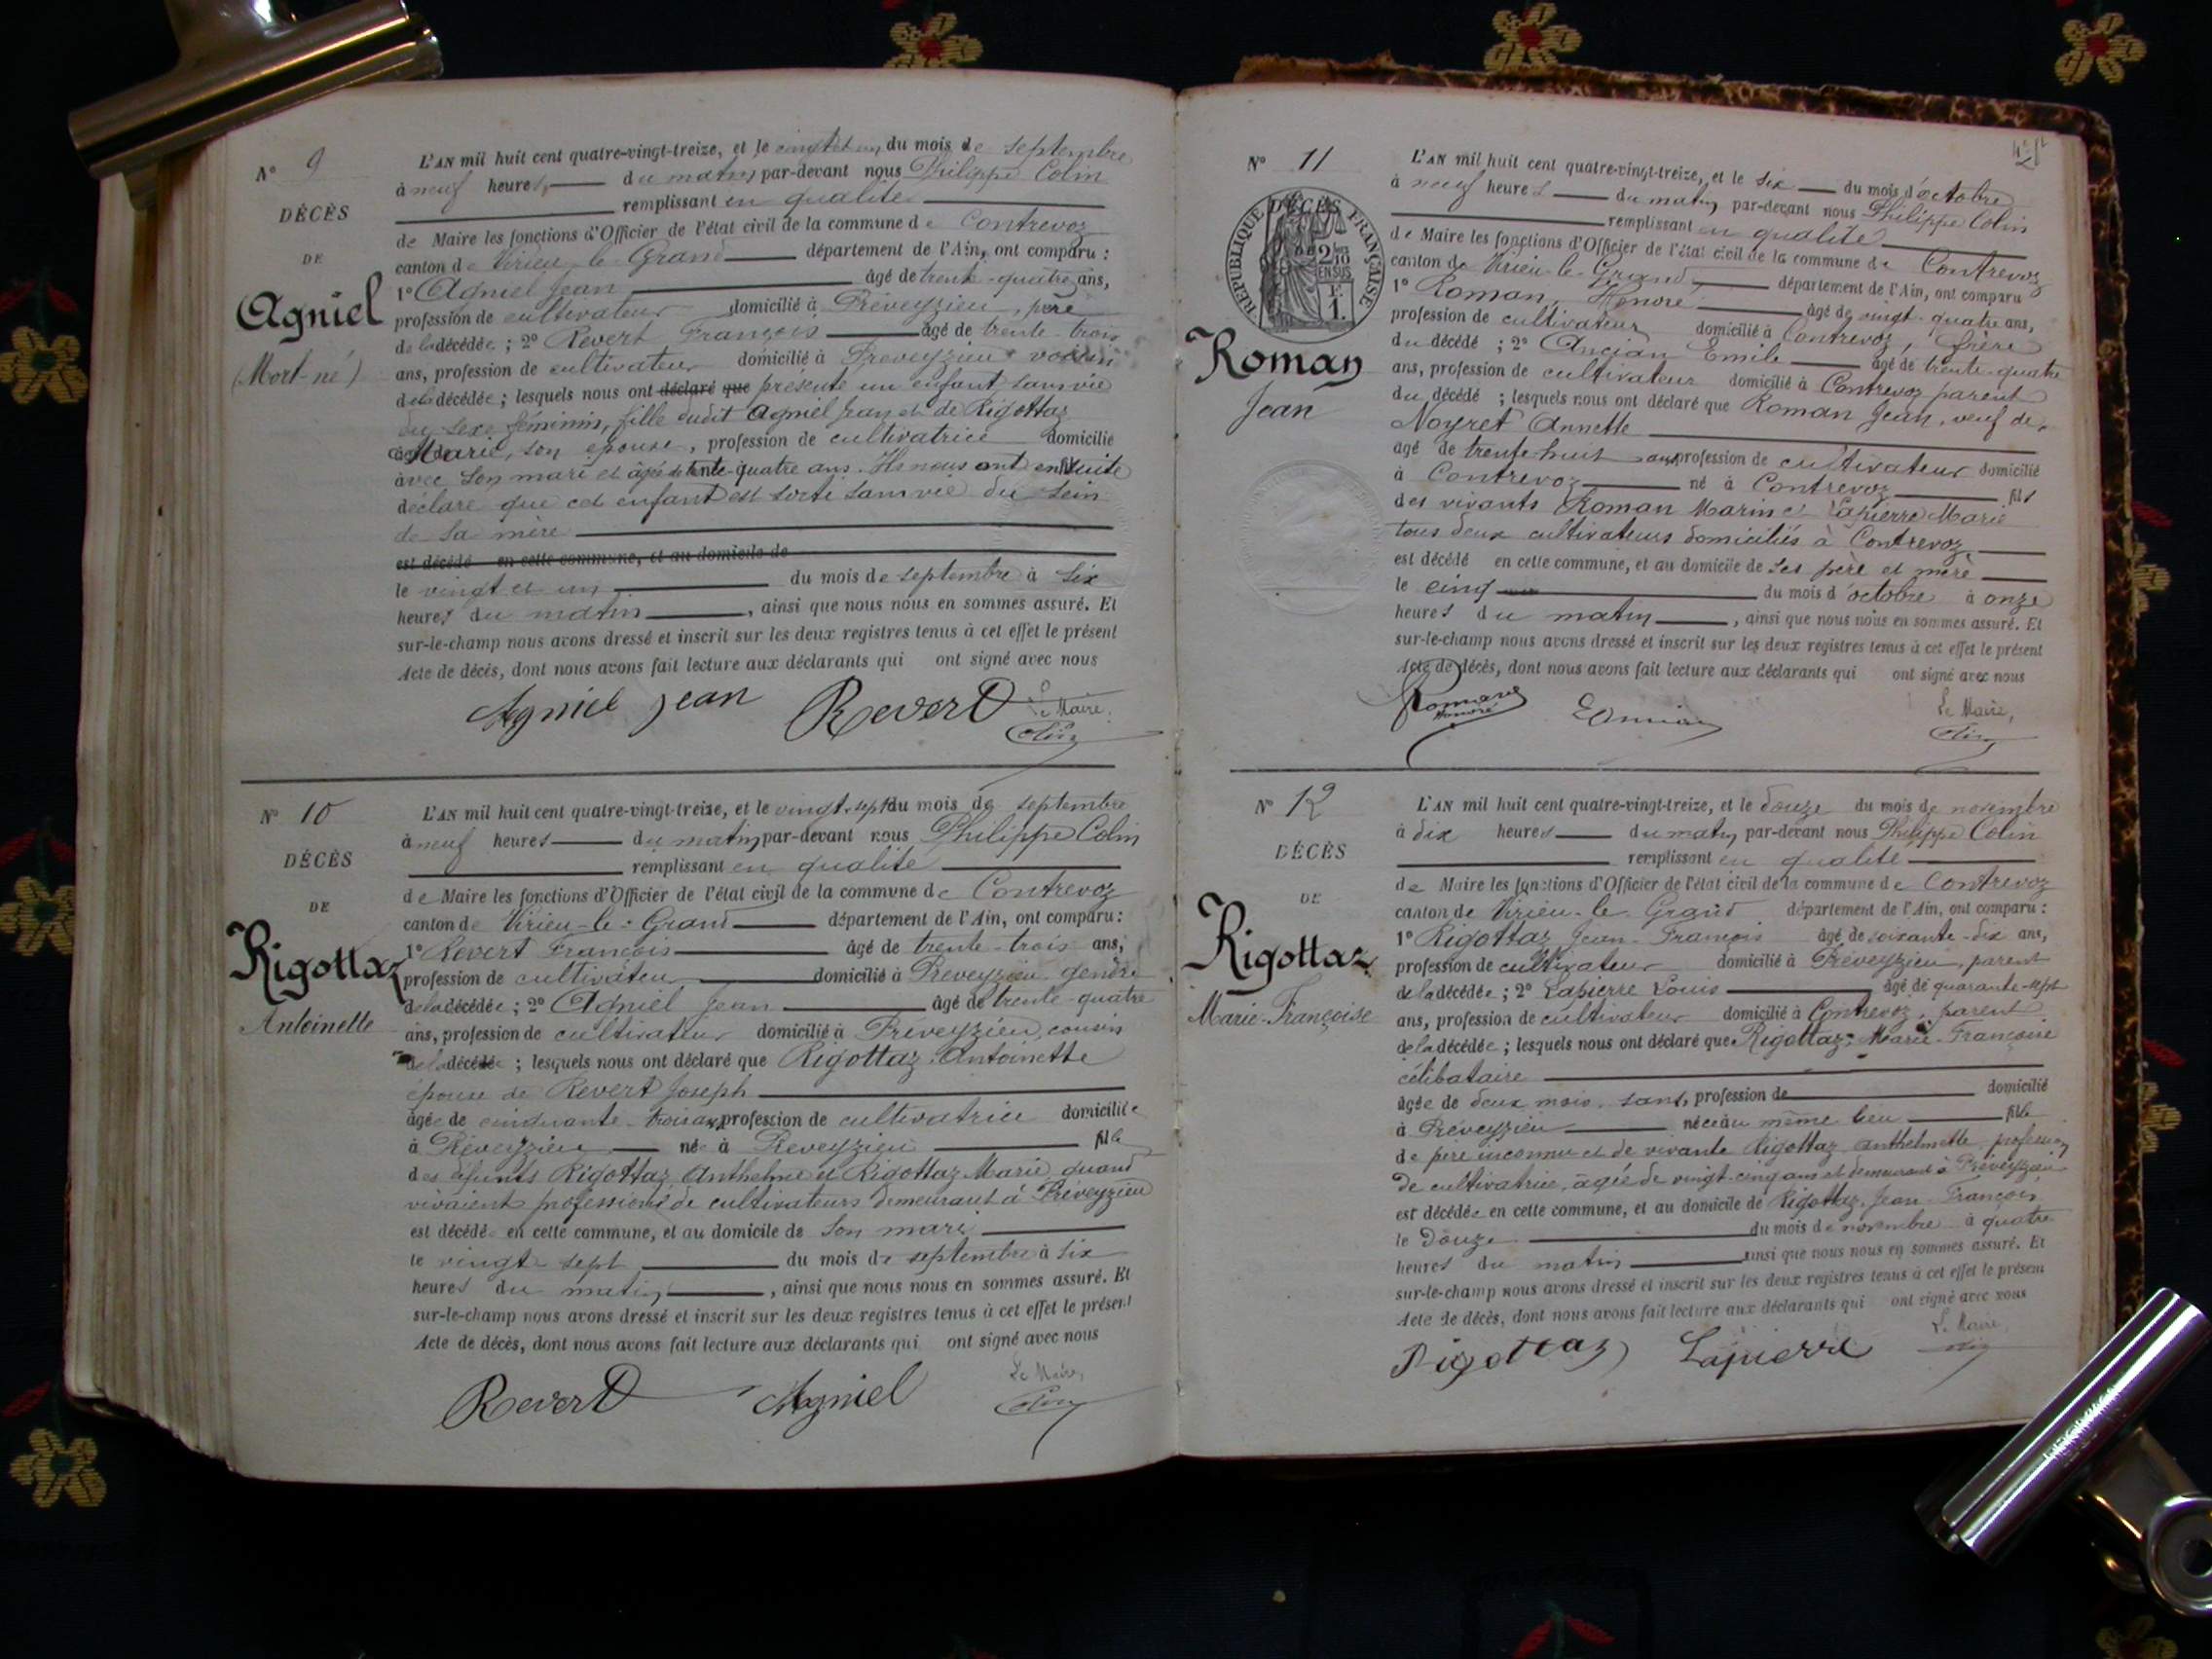 N° 9
DÉCÈS
DE
Agniel
(Mort-né)
L'AN mil huit cent quatre-vingt-treize, et le vingt et un du mois de septembre
à neuf heures, du matin par-devant nous Philippe Colin
remplissant en qualité
de Maire les fonctions d'Officier de l'état civil de la commune de Contrevoz
canton de Virieu-le-Grand département de l'Ain, ont comparu :
1° Agniel Jean âgé de trente-quatre ans,
profession de cultivateur domicilié à Préveyzieu, père
de la décédée ; 2° Revert François âgé de trente-trois
ans, profession de cultivateur domicilié à Préveyzieu voisin
de la décédée ; lesquels nous ont déclaré que présenté un enfant sans vie
du sexe féminin, fille dudit Agniel Jean et de Rigottaz
Marie, son épouse, profession de cultivatrice domicilié
avec son mari et âgée de trente-quatre ans. Ils nous ont ensuite
déclaré que cet enfant est sorti sans vie du sein
de sa mère
est décédé en cette commune, et au domicile de
le vingt et un du mois de septembre à six
heures du matin, ainsi que nous nous en sommes assuré. Et
sur-le-champ nous avons dressé et inscrit sur les deux registres tenus à cet effet le présent
Acte de décès, dont nous avons fait lecture aux déclarants qui ont signé avec nous
Agniel Jean Revert Le Maire,
Colin
N° 10
DÉCÈS
DE
Rigottaz
Antoinette
L'AN mil huit cent quatre-vingt-treize, et le vingt-sept du mois de septembre
à neuf heures du matin par-devant nous Philippe Colin
remplissant en qualité
de Maire les fonctions d'Officier de l'état civil de la commune de Contrevoz
canton de Virieu-le-Grand département de l'Ain, ont comparu :
1° Revert François âgé de trente-trois ans,
profession de cultivateur domicilié à Préveyzieu gendre
de la décédée ; 2° Agniel Jean âgé de trente-quatre
ans, profession de cultivateur domicilié à Préveyzieu, cousin
de la décédée ; lesquels nous ont déclaré que Rigottaz Antoinette
épouse de Revert Joseph
âgée de cinquante-trois ans profession de cultivatrice domiciliée
à Préveyzieu née à Préveyzieu fille
des défunts Rigottaz Anthelme et Rigottaz Marie, quand
vivaient professions de cultivateurs demeurant à Préveyzieu
est décédée en cette commune, et au domicile de son mari
le vingt sept du mois de septembre à six
heures du matin, ainsi que nous nous en sommes assuré. Et
sur-le-champ nous avons dressé et inscrit sur les deux registres tenus à cet effet le présent
Acte de décès, dont nous avons fait lecture aux déclarants qui ont signé avec nous
Revert Agniel Le Maire,
Colin
N° 11
DÉCÈS
RÉPUBLIQUE FRANÇAISE
2/10 EN SUS
F. 1.
Roman
Jean
L'AN mil huit cent quatre-vingt-treize, et le six du mois d'octobre
à neuf heures du matin par-devant nous Philippe Colin
remplissant en qualité
de Maire les fonctions d'Officier de l'état civil de la commune de Contrevoz
canton de Virieu-le-Grand département de l'Ain, ont comparu
1° Roman, Honoré âgé de vingt-quatre ans,
profession de cultivateur domicilié à Contrevoz, frère
du décédé ; 2° Ancian Emile âgé de trente-quatre
ans, profession de cultivateur domicilié à Contrevoz parent
du décédé ; lesquels nous ont déclaré que Roman Jean, veuf de
Noyret Annette
âgé de trente-huit ans profession de cultivateur domicilié
à Contrevoz né à Contrevoz fils
des vivants Roman Marin et Lapierre Marie
tous deux cultivateurs domiciliés à Contrevoz
est décédé en cette commune, et au domicile de ses père et mère
le cinq du mois d'octobre à onze
heures du matin, ainsi que nous nous en sommes assuré. Et
sur-le-champ nous avons dressé et inscrit sur les deux registres tenus à cet effet le présent
Acte de décès, dont nous avons fait lecture aux déclarants qui ont signé avec nous
Roman Honoré Le Maire,
Colin
N° 12
DÉCÈS
DE
Rigottaz
Marie-Françoise
L'AN mil huit cent quatre-vingt-treize, et le douze du mois de novembre
à dix heures du matin par-devant nous Philippe Colin
remplissant en qualité
de Maire les fonctions d'Officier de l'état civil de la commune de Contrevoz
canton de Virieu-le-Grand département de l'Ain, ont comparu :
1° Rigottaz Jean-François âgé de soixante-dix ans,
profession de cultivateur domicilié à Préveyzieu, parent
de la décédée ; 2° Lapierre Louis âgé de quarante-sept
ans, profession de cultivateur domicilié à Contrevoz, parent
de la décédée ; lesquels nous ont déclaré que Rigottaz Marie-Françoise
célibataire
âgée de deux mois, sans, profession de domicilié
à Préveyzieu née au même lieu fille
de père inconnu et de vivante Rigottaz Anthelmette profession
de cultivatrice, âgée de vingt-cinq ans et demeurant à Préveyzieu
est décédée en cette commune, et au domicile de Rigottaz Jean-François
le douze du mois de novembre à quatre
heures du matin ainsi que nous nous en sommes assuré. Et
sur-le-champ nous avons dressé et inscrit sur les deux registres tenus à cet effet le présent
Acte de décès, dont nous avons fait lecture aux déclarants qui ont signé avec nous
Rigottaz Lapierre Le Maire,
Colin